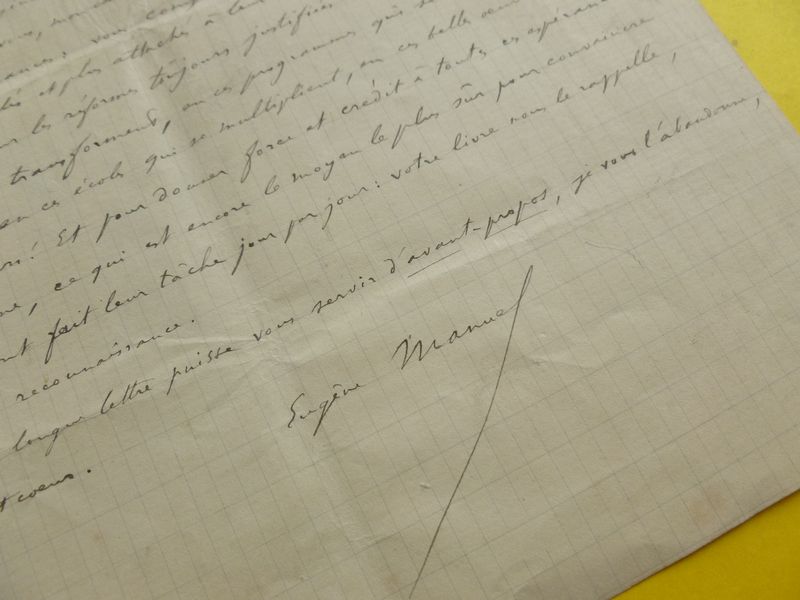 ances : vous
et plus attaché à leur
les réformes toujours justifiées
transforment, en ces programmes qui se
en ces écoles qui se multiplient, en ces belles
! Et pour donner force et crédit à toutes ces espérances
, ce qui est encore le moyen le plus sûr pour convaincre
ont fait leur tâche jour par jour : votre livre nous le rappelle,
reconnaissance.
longue lettre puisse vous servir d'avant-propos, je vous l'abandonne,
coeur.
Eugène Manuel